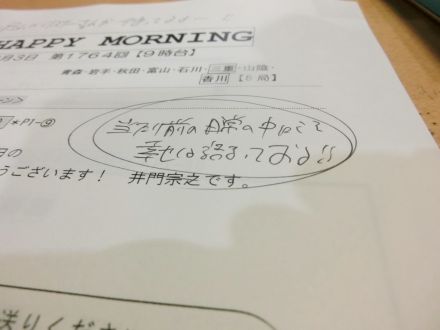 HAPPY MORNING
月3日 第1764回【9時台】
青森・岩手・秋田・富山・石川・三重・山陰・
香川【8局】
*P1-⑨
当たり前の日常の中にこそ
幸せは溢っております!!
日の
うございます! 井門宗之です。
送りくださ